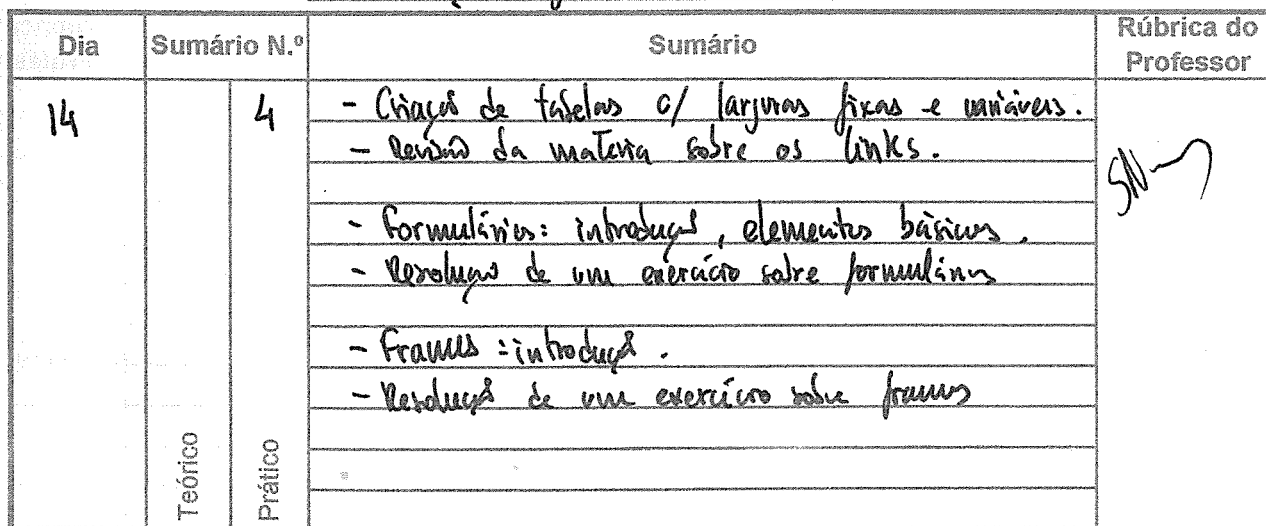 Dia Sumário N.º Sumário Rúbrica do Professor
14 4 - Criação de tabelas c/ larguras fixas e variáveis.
- Revisão da matéria sobre os links.
- Formulários: introdução, elementos básicos.
- Resolução de um exercício sobre formulários
- Frames: introdução.
- Resolução de um exercício sobre frames
Teórico Prático